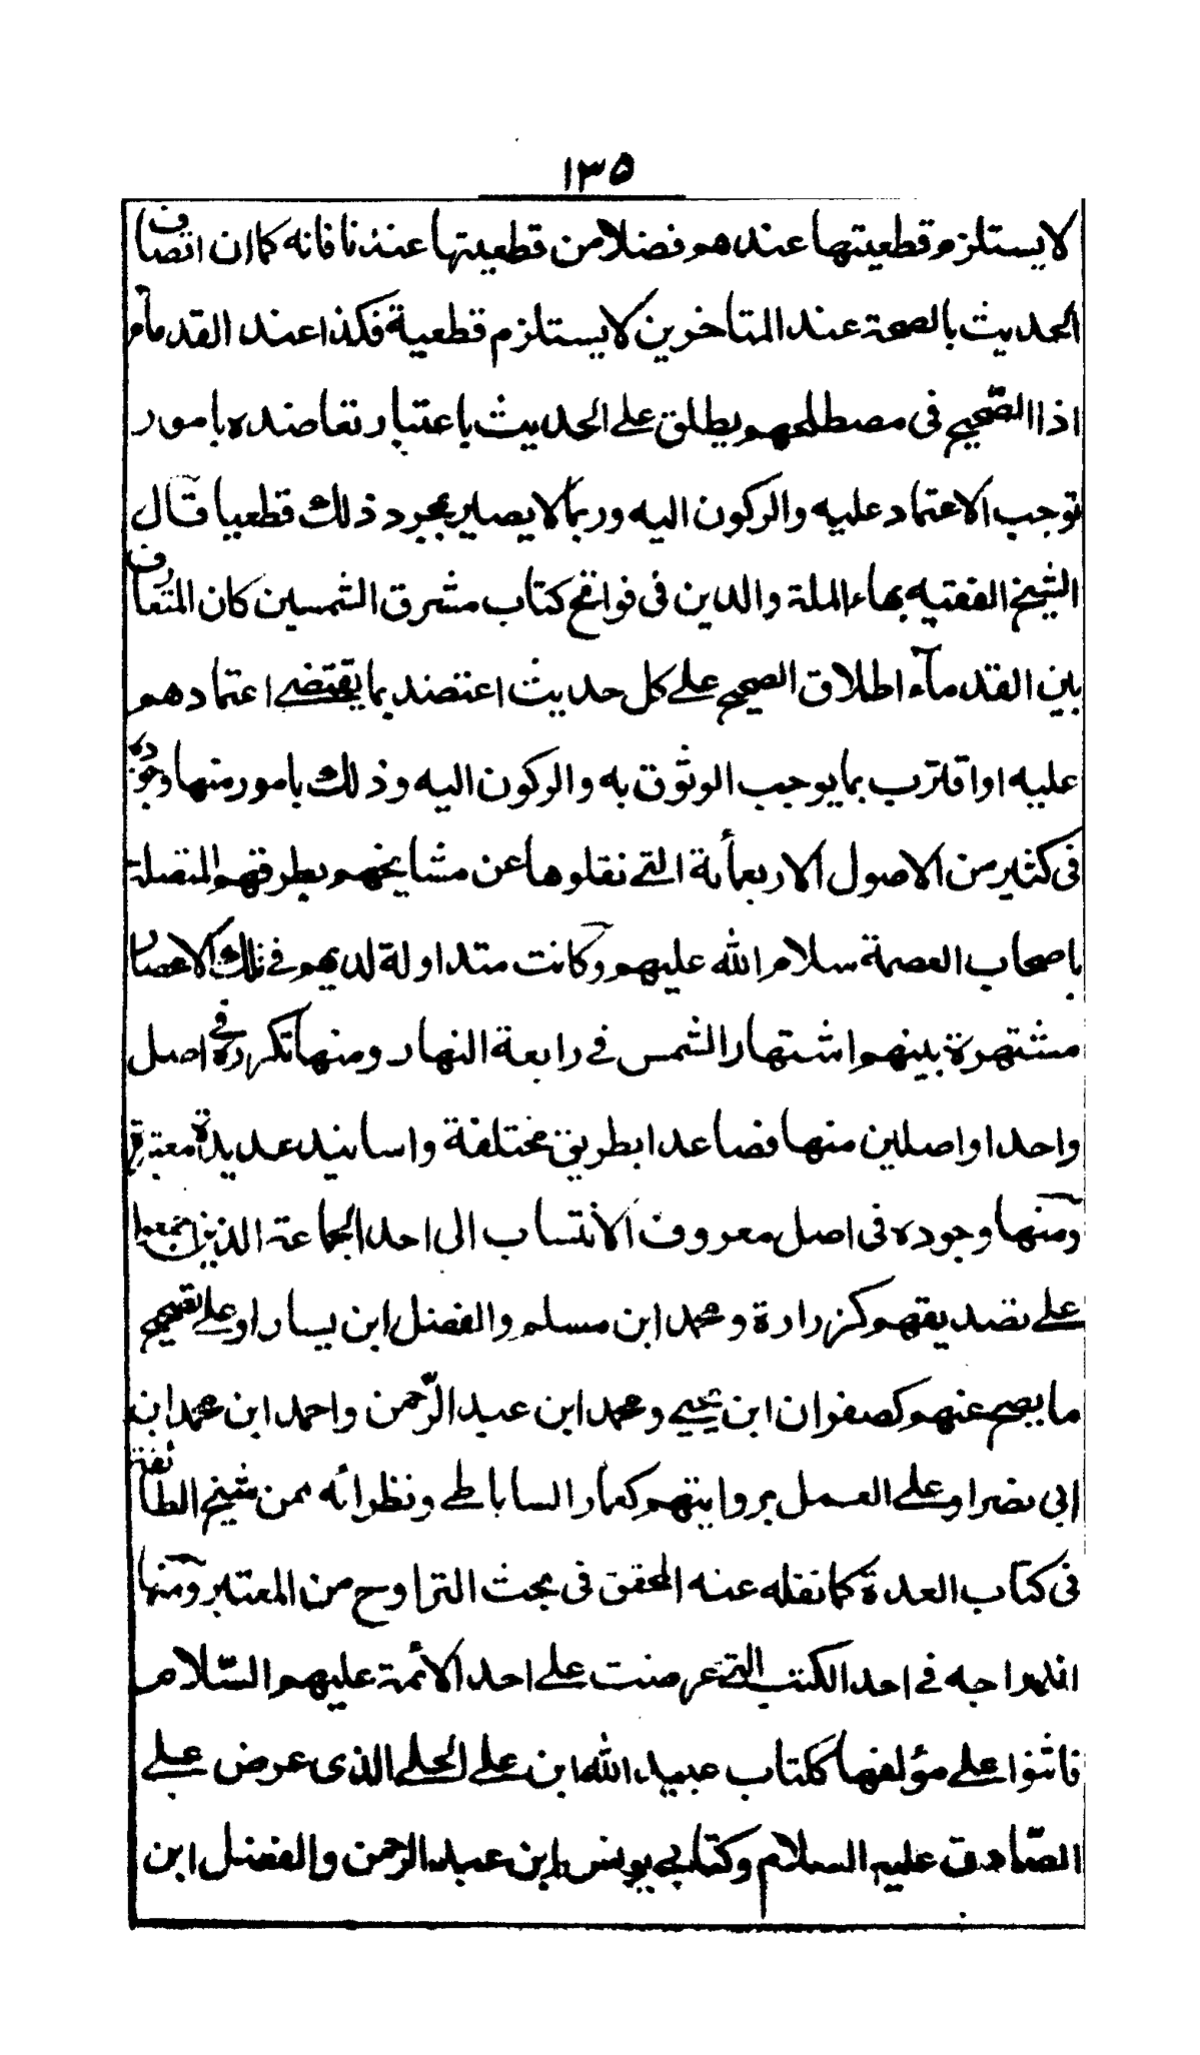 ١٣٥
لا يستلزم قطعيتها عندهم فضلا من قطعيتها عندنا فانه كما ان اتصاف
الحديث بالصحة عند المتاخرين لا يستلزم قطعية فكذا عند القدمآء
اذا الصّحيح فى مصطلحهم يطلق على الحديث باعتبار تعاضده بامور
توجب الاعتماد عليه والركون اليه وربما لا يصير بمجرد ذلك قطعيا قال
الشيخ الفقيه بهاء الملة والدين فى فواتح كتاب مشرق الشمسين كان المتعارف
بين القدمآء اطلاق الصحيح على كل حديث اعتضد بما يقتضى اعتمادهم
عليه او اقترب بما يوجب الوثوق به والركون اليه وذلك بامور منها وجوده
فى كثير من الاصول الاربعمأئة التى نقلوها عن مشايخهم بطرقهم المتصلة
باصحاب العصمة سلام الله عليهم وكانت متداولة لديهم فى تلك الاعصار
مشتهرة بينهم اشتهار الشمس فى رابعة النهار ومنها تكرره فى اصل
واحد او اصلين منها فصاعدا بطريق مختلفة واسانيد عديدة معتبرة
ومنها وجوده فى اصل معروف الانتساب الى احد الجماعة الذين اجمعوا
على تصديقهم كزرارة ومحمد ابن مسلم والفضل ابن يسار او على تصحيح
ما يصح عنهم كصفوان ابن يحيى ومحمد ابن عبد الرّحمن واحمد ابن محمد ابن
ابى نصر او على العمل بروايتهم كعمار الساباطى ونظرائه ممن شيخ الطائفة
فى كتاب العدة كما نقله عنه المحقق فى بحث التراوح من المعتبر ومنها
اندراجه فى احد الكتب التى عرضت على احد الأئمة عليهم السّلام
فاثنوا على مؤلفها ككتاب عبيد الله ابن على الحلى الذى عرض على
الصّادق عليه السلام وكتابى يونس ابن عبد الرحمن والفضل ابن